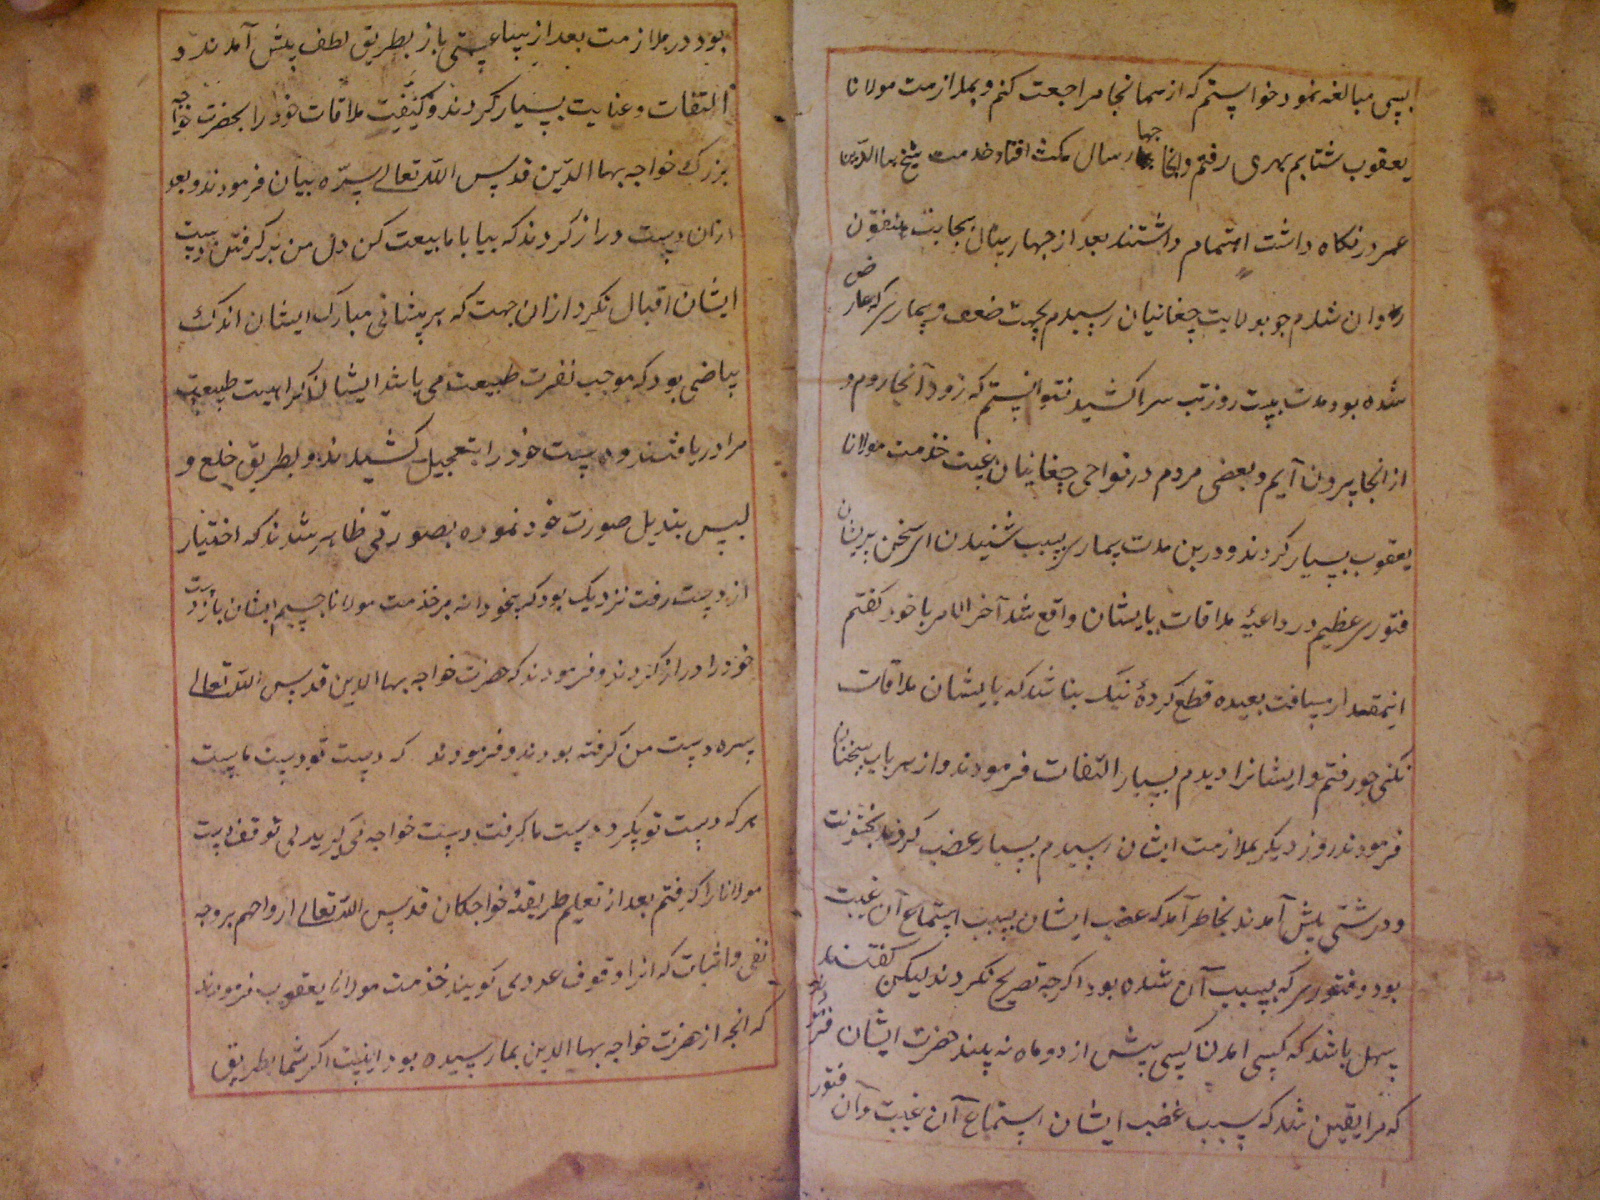 بسی مبالغه نمود خواستم که از همانجا مراجعت کنم و بملازمت مولانا
یعقوب شتابم بهری رفتم و انجا چهار سال مکث افتاد خدمت شیخ بهاالدین
عمر در نکاه داشت اهتمام داشتند بعد از چهار سال بجانب هلفتون
روان شدم چو بولایت چغانیان رسیدم بجهت ضعف و بیماری که عارض
شده بود مدت بیست روز تب سرا کشید نتوانستم که زود آنجا روم و
از انجا بیرون آیم و بعضی مردم در نواحی چغانیان غیبت خدمت مولانا
یعقوب بسیار کردند و درین مدت بیماری بسبب شنیدن این سخن پریشان
فتوری عظیم در داعیهٔ ملاقات بایشان واقع شد آخر الامر با خود کفتم
اینمقدار مسافت بعیده قطع کردهٔ نیک نباشد که بایشان ملاقات
نکنی چو رفتم و ایشانرا دیدم بسیار التفات فرمودند و از هر باب سخنان
فرمودند روز دیکر بملازمت ایشان رسیدم بسیار غضب کردند و بخشونت
و درشتی پیش آمدند بخاطر آمد که غضب ایشان بسبب استماع آن غیبت
بود و فتوری که بسبب آن شده بود اکرچه تصریح نکردند لیکن کفتند
سهل باشد که کسی امدن کسی پیش از دو ماه نه بیند حضرت ایشان فرمودند
که مرا یقین شد که سبب غضب ایشان استماع آن غیبت و آن فتور
بود در ملازمت بعد از ساعتی باز بطریق لطف پیش آمدند و
التفات و عنایت بسیار کردند و کیفیت ملاقات خود را بحضرت خواجه
بزرک خواجه بهاالدین قدس الله تعالی سره بیان فرمودند و بعد
ازان دست دراز کردند که بیا با ما بیعت کن دل من بر کرفتن دست
ایشان اقبال نکرد ازان جهت که بر پیشانی مبارک ایشان اندک
بیاضی بود که موجب نفرت طبیعت می باشد ایشان کراهیت طبیعت
مرا دریافتند و دست خود را بتعجیل کشیدند و بطریق خلع و
لبس تبدیل صورت خود نموده بصورتی ظاهر شدند که اختیار
از دست رفت نزدیک بود که بیخودانه بر خدمت مولانا چسپم ایشان باز دست
خود را دراز کردند و فرمودند که حضرت خواجه بهاالدین قدس الله تعالی
سره دست من کرفته بودند و فرمودند که دست تو دست ماست
هر که دست تو بکرد دست ما کرفت دست خواجه می کیرید بی توقف دست
مولانا را کرفتم بعد از تعلیم طریقهٔ خواجکان قدس الله تعالی ارواحهم بر وجه
نفی و اثبات که انرا وقوف عددی کویند خدمت مولانا یعقوب فرمودند
که انچه از حضرت خواجه بهاالدین بما رسیده بود اینست اکر شما بطریق